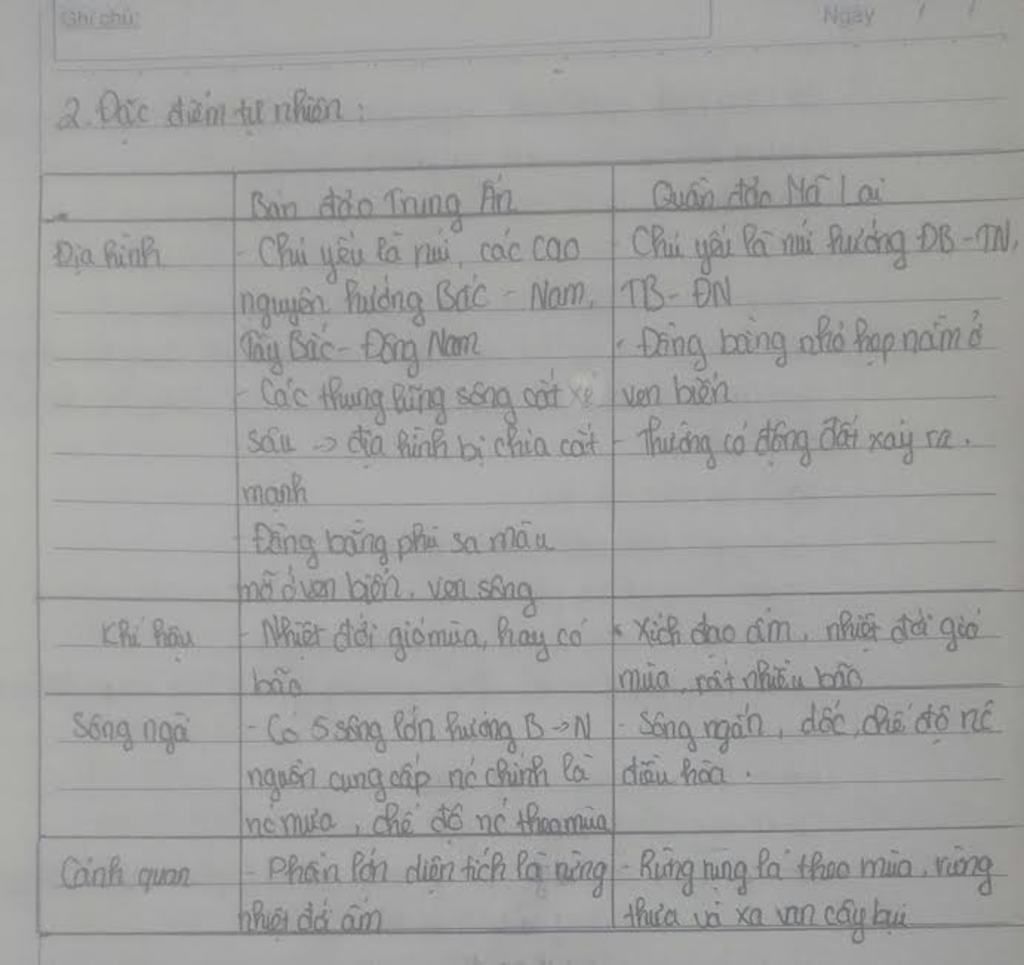 Ghi chú:
Ngày / /
2. Đặc điểm tự nhiên:
Bán đảo Trung Ấn
Quần đảo Mã Lai
Địa hình
- Chủ yếu là núi, các cao
nguyên hướng Bắc - Nam,
Tây Bắc - Đông Nam
- Các thung lũng sông cắt xẻ
sâu -> địa hình bị chia cắt
mạnh
Đồng bằng phù sa màu
mỡ ở ven biển, ven sông
- Chủ yếu là núi hướng ĐB-TN,
TB-ĐN
- Đồng bằng nhỏ hẹp nằm ở
ven biển
- Thường có động đất xảy ra.
Khí hậu
- Nhiệt đới gió mùa, hay có
bão
- Xích đạo ẩm, nhiệt đới gió
mùa, rất nhiều bão
Sông ngòi
- Có 5 sông lớn hướng B->N
nguồn cung cấp nc chính là
nc mưa, chế độ nc theo mùa
- Sông ngắn, dốc, chế độ nc
điều hòa.
Cảnh quan
- Phần lớn diện tích là rừng
nhiệt đới ẩm
- Rừng rụng lá theo mùa, rừng
thưa và xa van cây bụi